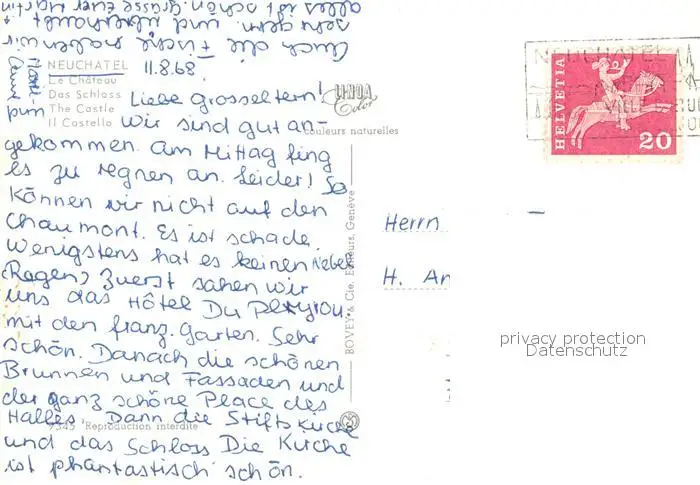 NEUCHATEL 11.8.68
Le Château
Das Schloss
The Castle
Il Castello
LINDA
Color
Couleurs naturelles
Liebe Grosseltern!
Wir sind gut an-
gekommen. Am Mittag fing
es zu regnen an. Leider! So
können wir nicht auf den
Chaumont. Es ist schade.
Wenigstens hat es keinen Nebel
(Regen) Zuerst sahen wir
uns das Hôtel Du Peyrou
mit den franz. Garten. Sehr
schön. Danach die schönen
Brunnen und Fassaden und
der ganz schöne Place des
Halles. Dann die Stiftskirche
und das Schloss Die Kirche
ist phantastisch schön.
Auch die Fische haben wir
sehr gern. und überhaupt
alles ist schön. Grüsse Euer Martin
und
9345 Reproduction interdite
BOVEY & Cie, Editeurs, Genève
HELVETIA
20
NEUCHATEL
Herrn
H. An
privacy protection
Datenschutz